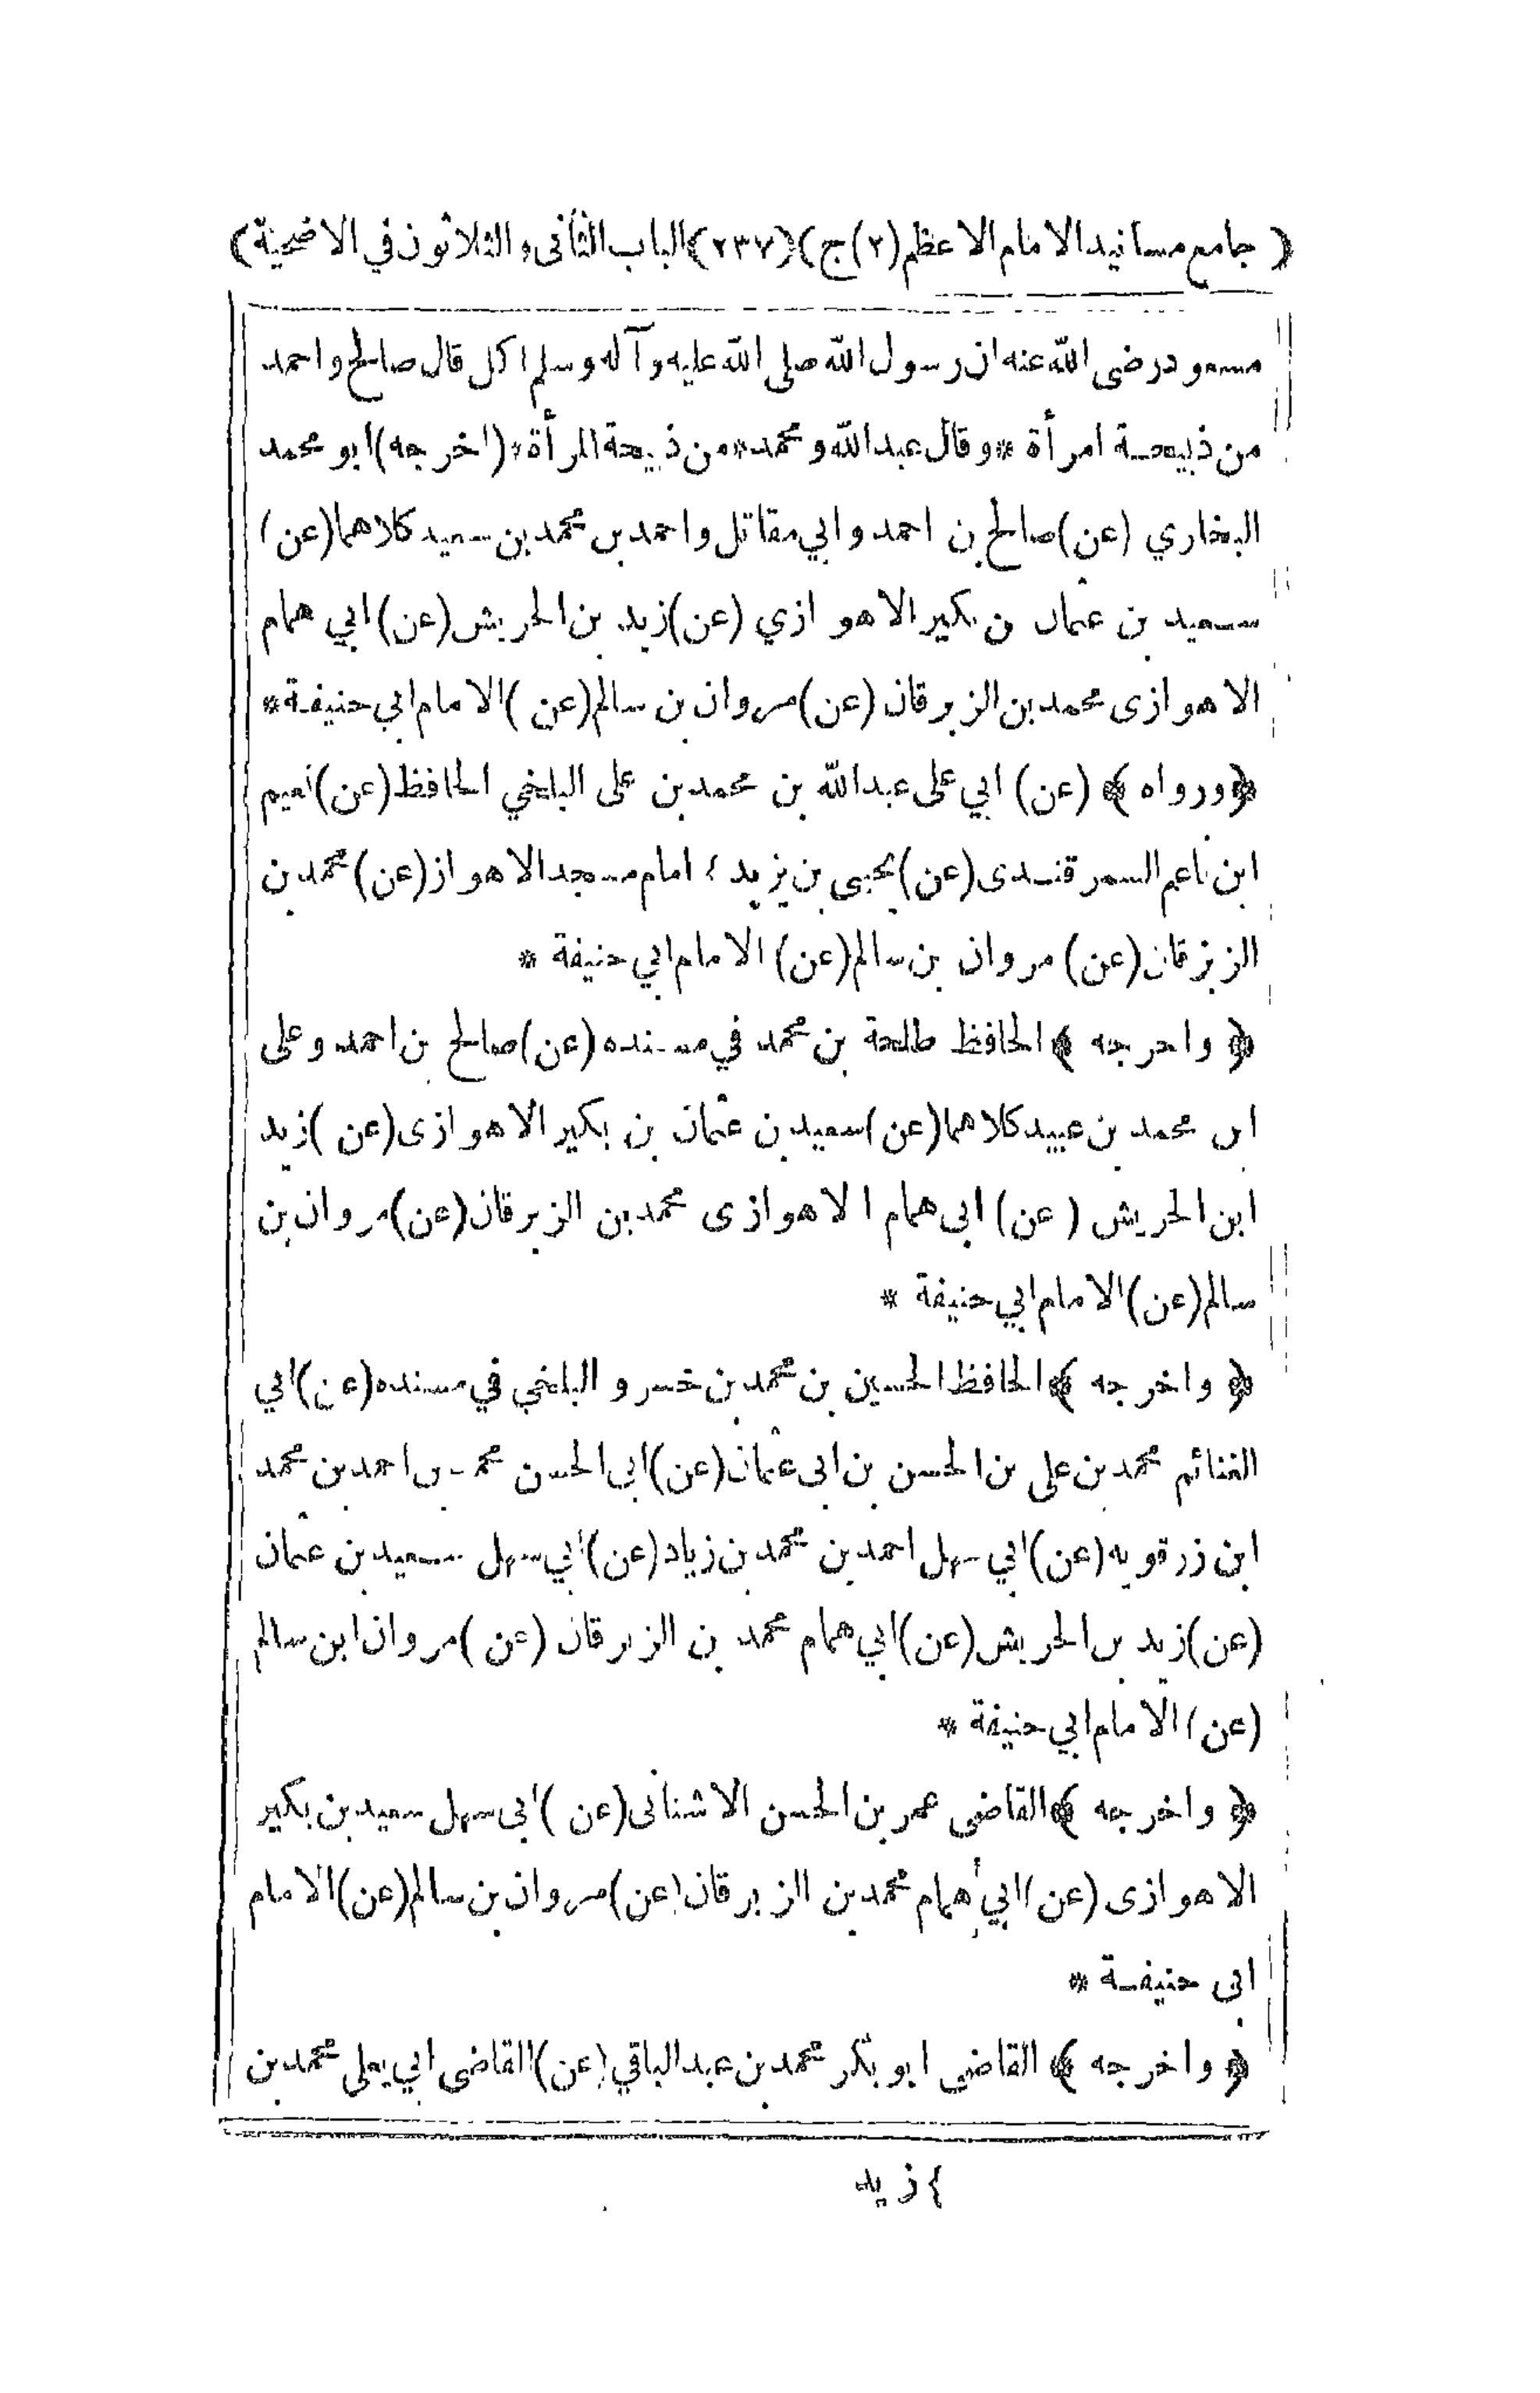 ( جامع مسانيد الامام الاعظم (٢) ج ) (٢٣٧) (الباب الثانى والثلاثون في الاضحية )
مسعود رضى الله عنه ان رسول الله صلى الله عليه وآله وسلم اكل قال صالح واحمد
من ذبيحة امرأة * وقال عبدالله ومحمد * من ذبيحة المرأة * (اخرجه) ابو محمد
البخاري (عن) صالح بن احمد وابي مقاتل واحمد بن محمد بن سعيد كلاهما (عن)
سعيد بن عثمان بن بكير الاهوازي (عن) زيد بن الحريش (عن) ابي همام
الاهوازى محمد بن الزبرقان (عن) مروان بن سالم (عن) الامام ابي حنيفة *
﴿ ورواه ﴾ (عن) ابي على عبدالله بن محمد بن على البلخي الحافظ (عن) نعيم
ابن ناعم السمرقندى (عن) يحيى بن يزيد امام مسجد الاهواز (عن) محمد بن
الزبرقان (عن) مروان بن سالم (عن) الامام ابي حنيفة *
﴿ واخرجه ﴾ الحافظ طلحة بن محمد في مسنده (عن) صالح بن احمد وعلى
ابن محمد بن عبيد كلاهما (عن) سعيد بن عثمان بن بكير الاهوازى (عن) زيد
ابن الحريش (عن) ابى همام الاهوازى محمد بن الزبرقان (عن) مروان بن
سالم (عن) الامام ابي حنيفة *
﴿ واخرجه ﴾ الحافظ الحسين بن محمد بن خسرو البلخي في مسنده (عن) ابي
الغنائم محمد بن على بن الحسن بن ابى عثمان (عن) ابى الحسن محمد بن احمد بن محمد
ابن زرقويه (عن) ابي سهل احمد بن محمد بن زياد (عن) ابي سهل سعيد بن عثمان
(عن) زيد بن الحريش (عن) ابي همام محمد بن الزبرقان (عن) مروان ابن سالم
(عن) الامام ابي حنيفة *
﴿ واخرجه ﴾ القاضى عمر بن الحسن الاشنانى (عن) ابى سهل سعيد بن بكير
الاهوازى (عن) ابي همام محمد بن الزبرقان (عن) مروان بن سالم (عن) الامام
ابى حنيفة *
﴿ واخرجه ﴾ القاضى ابو بكر محمد بن عبدالباقي (عن) القاضى ابي يعلى محمد بن
زيد